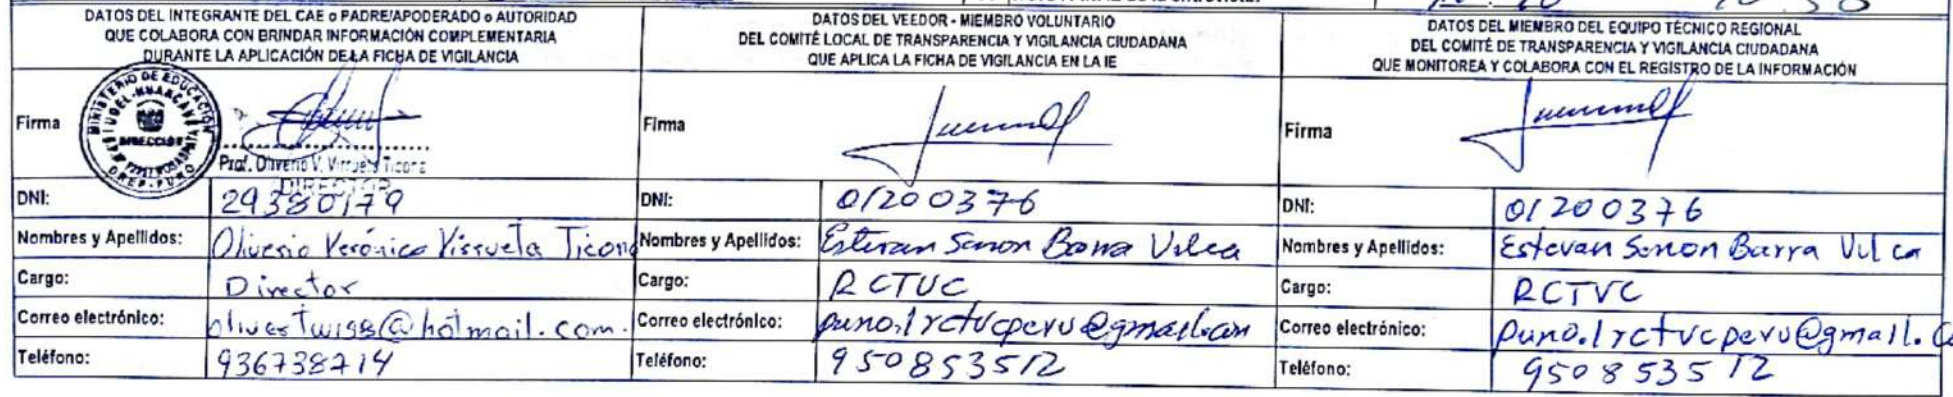 DATOS DEL INTEGRANTE DEL CAE o PADRE/APODERADO o AUTORIDAD
QUE COLABORA CON BRINDAR INFORMACIÓN COMPLEMENTARIA
DURANTE LA APLICACIÓN DE LA FICHA DE VIGILANCIA
Firma
MINISTERIO DE EDUCACIÓN
DIRECCIÓN
DREP - PUNO
Prof. Oliverio V. Virrueta Ticona
DIRECTOR
DNI: 29380179
Nombres y Apellidos: Oliverio Verónico Virrueta Ticona
Cargo: Director
Correo electrónico: @hotmail.com.
Teléfono: 936738714
DATOS DEL VEEDOR - MIEMBRO VOLUNTARIO
DEL COMITÉ LOCAL DE TRANSPARENCIA Y VIGILANCIA CIUDADANA
QUE APLICA LA FICHA DE VIGILANCIA EN LA IE
Firma
DNI: 01200376
Nombres y Apellidos: Estevan Senon Barra Vilca
Cargo: RCTVC
Correo electrónico: puno.1rctvcperu@gmail.com
Teléfono: 950853512
DATOS DEL MIEMBRO DEL EQUIPO TÉCNICO REGIONAL
DEL COMITÉ DE TRANSPARENCIA Y VIGILANCIA CIUDADANA
QUE MONITOREA Y COLABORA CON EL REGISTRO DE LA INFORMACIÓN
Firma
DNI: 01200376
Nombres y Apellidos: Estevan Senon Barra Vilca
Cargo: RCTVC
Correo electrónico: puno.1rctvcperu@gmail.co
Teléfono: 950853512